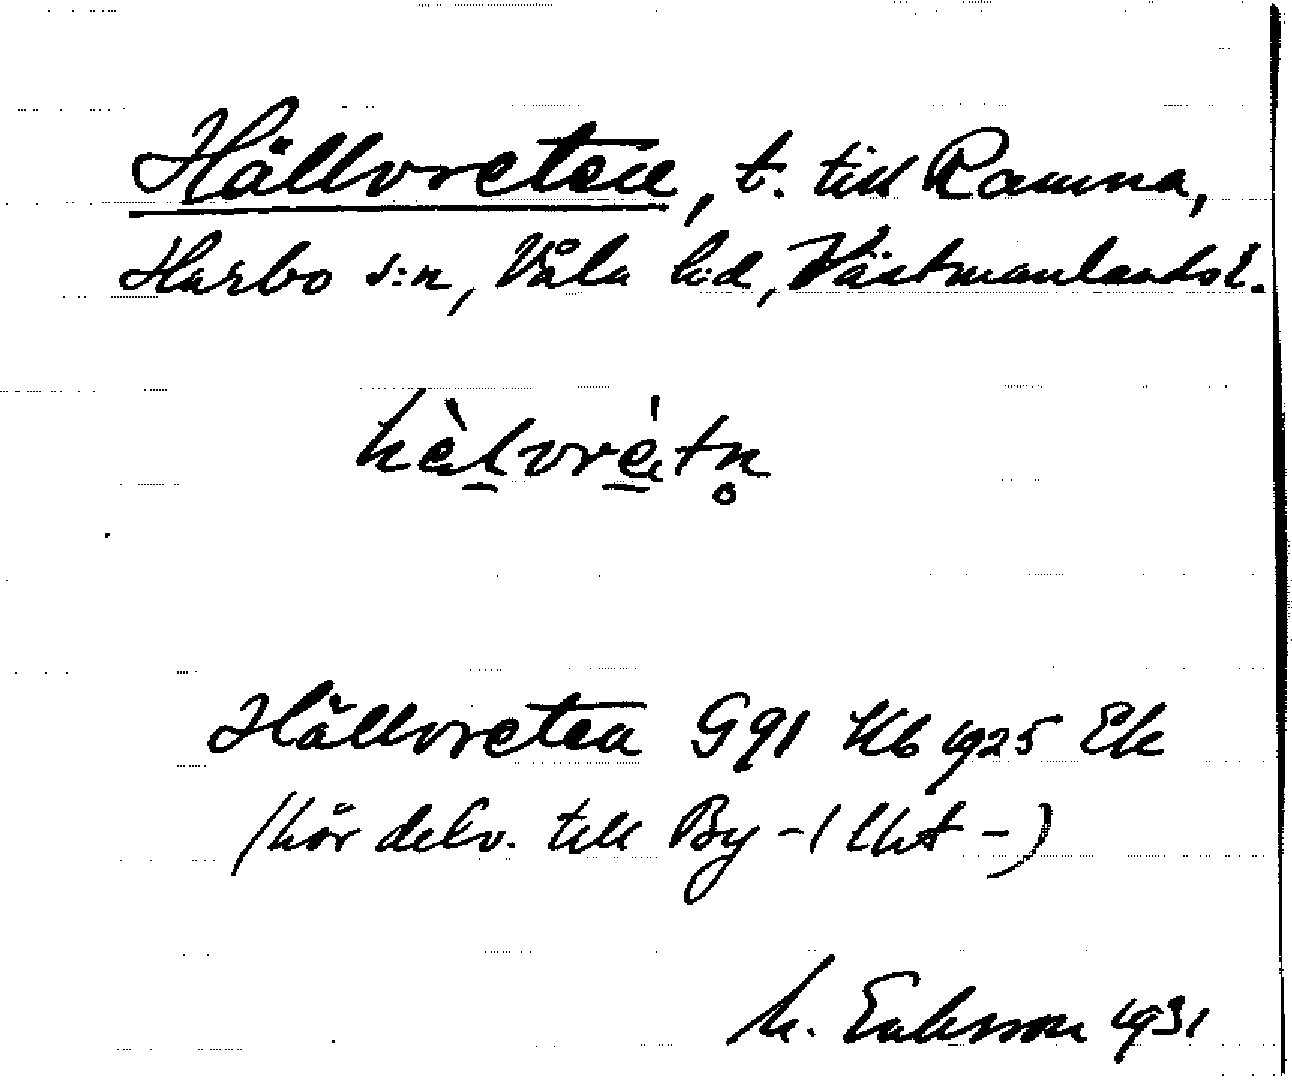 Hällvreten, t. till Ramna,
Harbo s:n, Våla h:d, Västmanlands l.
hèlvrètn̥
Hällvreten G91 Kb 1925 Ek
(hör delv. till By
M. Eriksson 1931